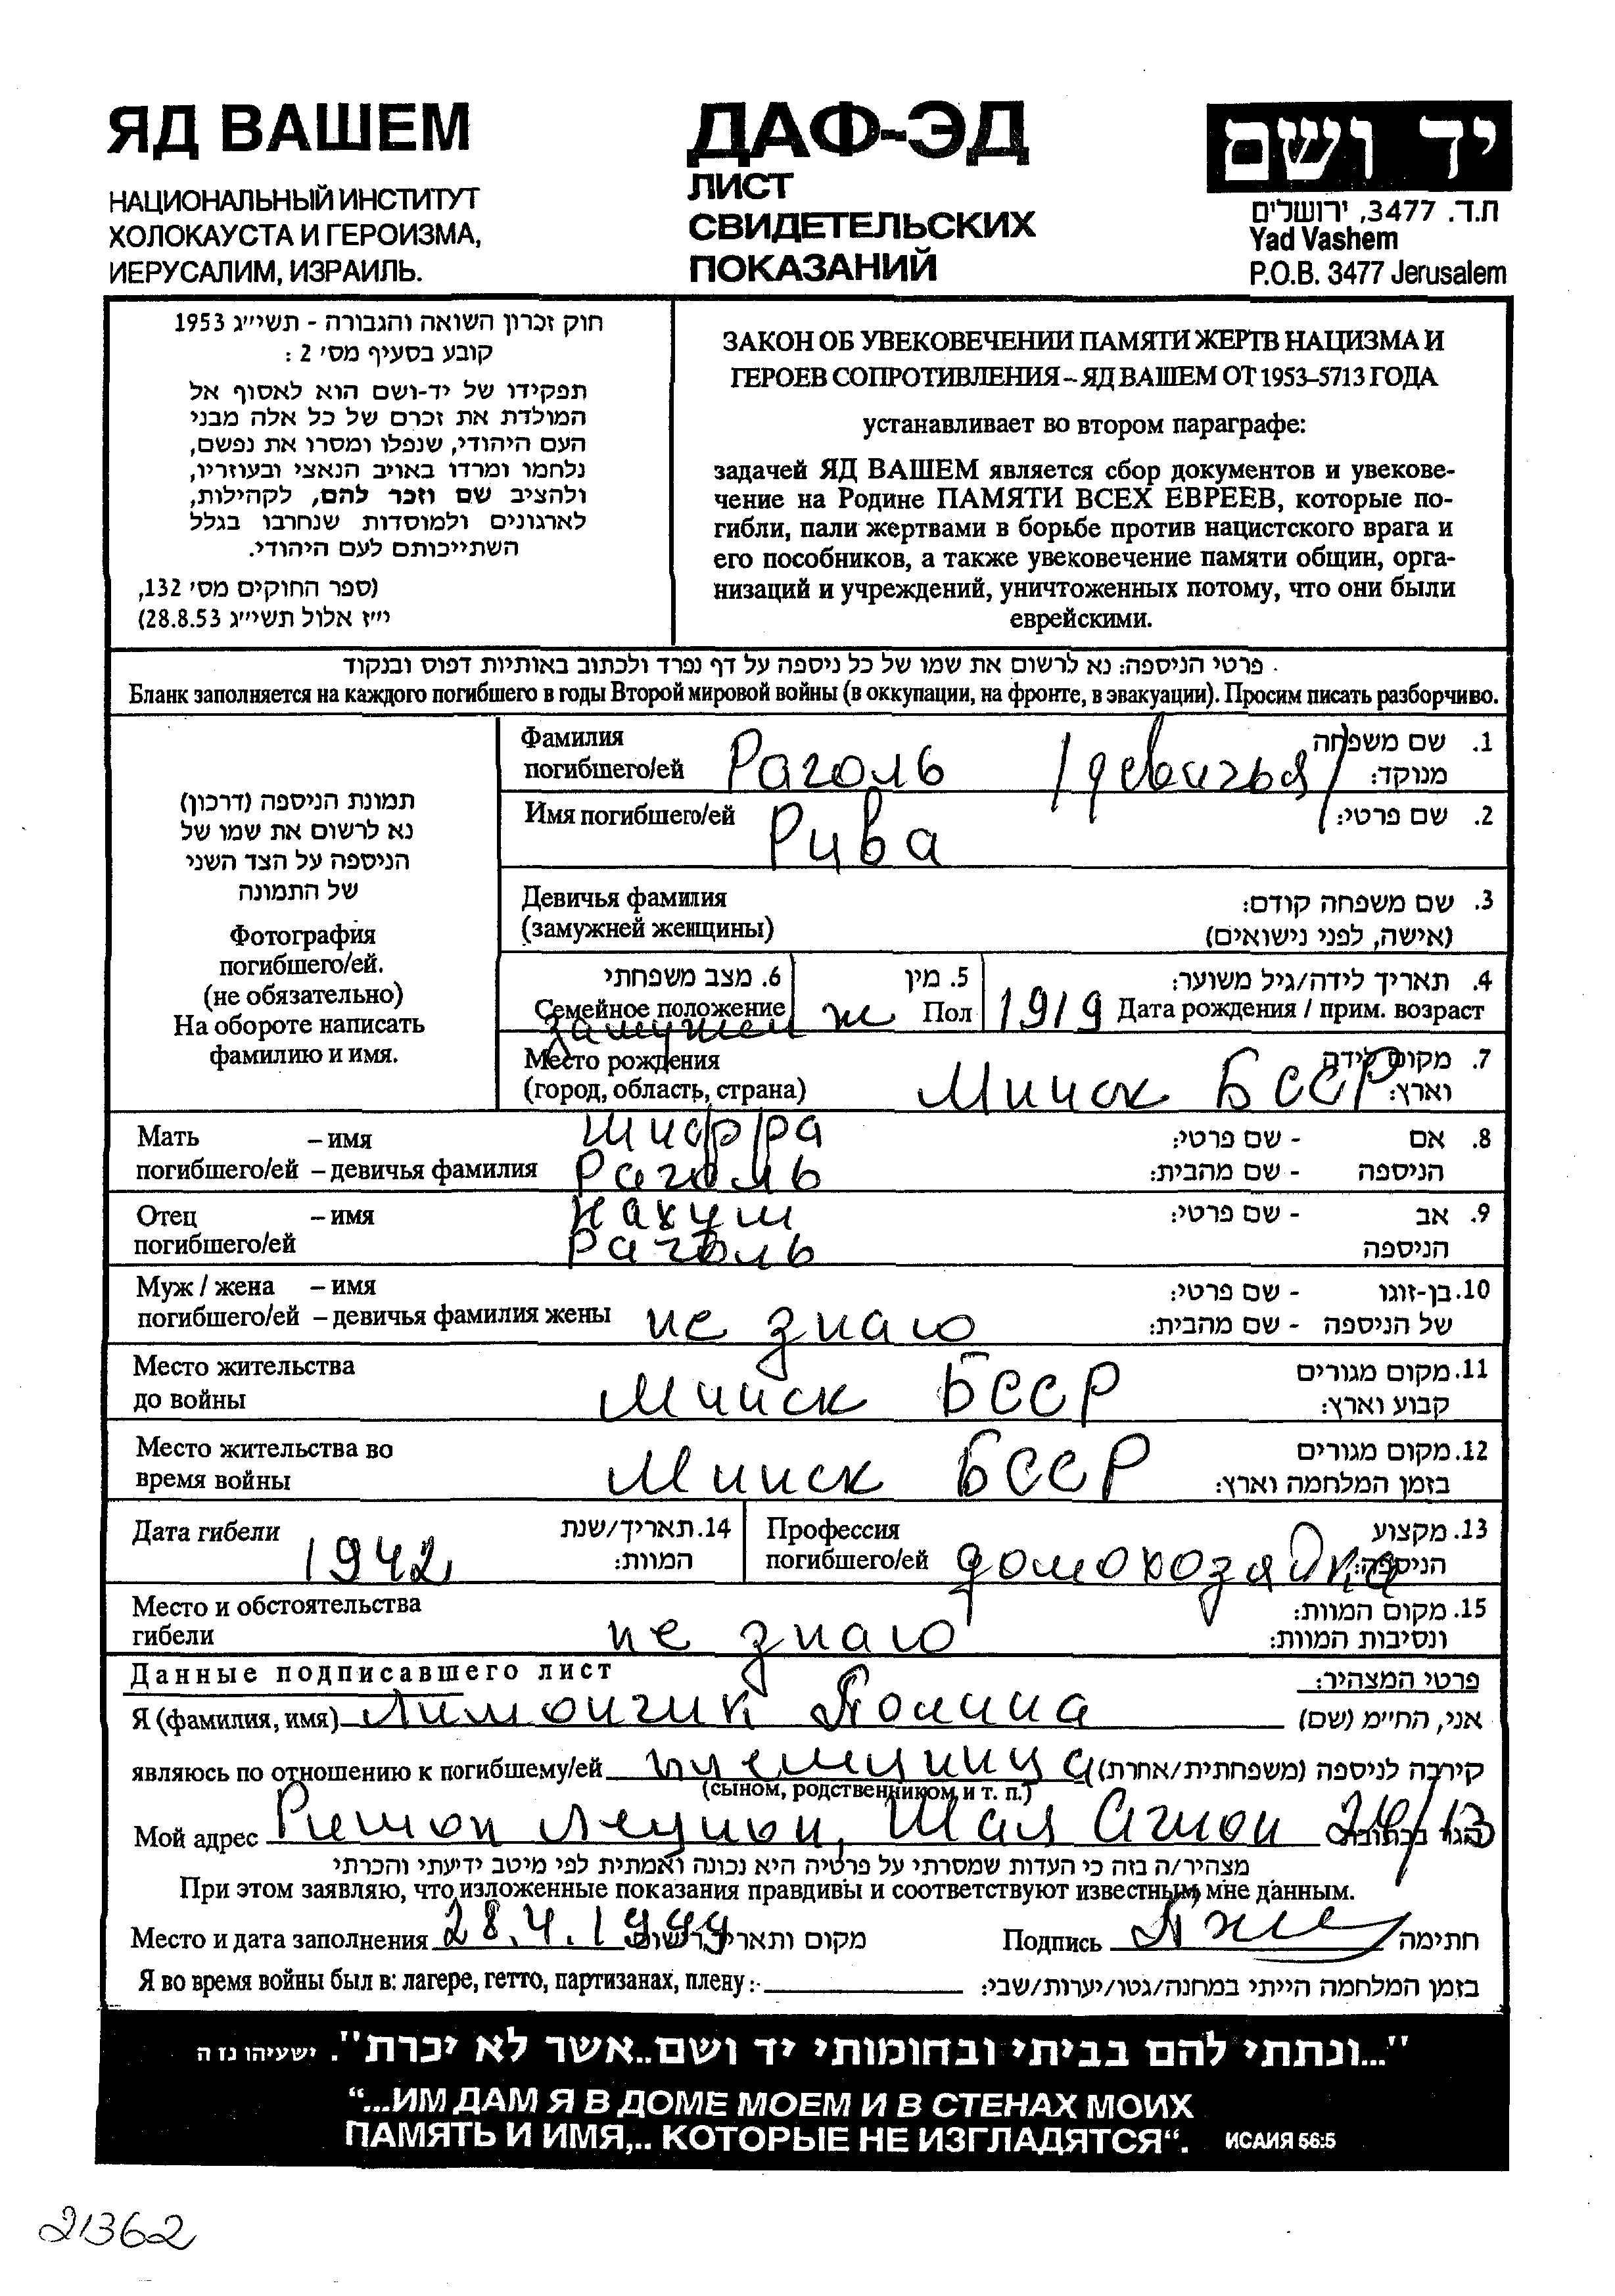 ЯД ВАШЕМ
НАЦИОНАЛЬНЫЙ ИНСТИТУТ
ХОЛОКАУСТА И ГЕРОИЗМА,
ИЕРУСАЛИМ, ИЗРАИЛЬ.
ДАФ-ЭД
ЛИСТ
СВИДЕТЕЛЬСКИХ
ПОКАЗАНИЙ
יד ושם
ת.ד. 3477, ירושלים
Yad Vashem
P.O.B. 3477 Jerusalem
חוק זכרון השואה והגבורה - תשי״ג 1953
קובע בסעיף מס׳ 2 :
תפקידו של יד-ושם הוא לאסוף אל
המולדת את זכרם של כל אלה מבני
העם היהודי, שנפלו ומסרו את נפשם,
נלחמו ומרדו באויב הנאצי ובעוזריו,
ולהציב שם וזכר להם, לקהילות,
לארגונים ולמוסדות שנחרבו בגלל
השתייכותם לעם היהודי.
(ספר החוקים מס׳ 132,
י״ז אלול תשי״ג 28.8.53)
ЗАКОН ОБ УВЕКОВЕЧЕНИИ ПАМЯТИ ЖЕРТВ НАЦИЗМА И
ГЕРОЕВ СОПРОТИВЛЕНИЯ – ЯД ВАШЕМ ОТ 1953–5713 ГОДА
устанавливает во втором параграфе:
задачей ЯД ВАШЕМ является сбор документов и увекове-
чение на Родине ПАМЯТИ ВСЕХ ЕВРЕЕВ, которые по-
гибли, пали жертвами в борьбе против нацистского врага и
его пособников, а также увековечение памяти общин, орга-
низаций и учреждений, уничтоженных потому, что они были
еврейскими.
פרטי הניספה: נא לרשום את שמו של כל ניספה על דף נפרד ולכתוב באותיות דפוס ובנקוד
Бланк заполняется на каждого погибшего в годы Второй мировой войны (в оккупации, на фронте, в эвакуации). Просим писать разборчиво.
תמונת הניספה (דרכון)
נא לרשום את שמו של
הניספה על הצד השני
של התמונה
Фотография
погибшего/ей.
(не обязательно)
На обороте написать
фамилию и имя.
Фамилия 1. שם משפחה
погибшего/ей Раголь /девичья/ מנוקד:
Имя погибшего/ей 2. שם פרטי:
Рива
Девичья фамилия 3. שם משפחה קודם:
(замужней женщины) (אישה, לפני נישואים)
6. מצב משפחתי 5. מין 4. תאריך לידה/גיל משוער:
Семейное положение ж Пол 1919 Дата рождения / прим. возраст
замужем
Место рождения 7. מקום לידה
(город, область, страна) Минск БССР וארץ:
Мать – имя Шифра 8. אם - שם פרטי:
погибшего/ей – девичья фамилия Раголь הניספה - שם מהבית:
Отец – имя Нахум 9. אב - שם פרטי:
погибшего/ей Раголь הניספה
Муж / жена – имя 10. בן-זוגו - שם פרטי:
погибшего/ей – девичья фамилия жены не знаю של הניספה - שם מהבית:
Место жительства 11. מקום מגורים
до войны Минск БССР קבוע וארץ:
Место жительства во 12. מקום מגורים
время войны Минск БССР בזמן המלחמה וארץ:
Дата гибели 14. תאריך/שנת Профессия 13. מקצוע
1942 המוות: погибшего/ей домохозяйка הניספה:
Место и обстоятельства 15. מקום המוות:
гибели не знаю ונסיבות המוות:
Данные подписавшего лист פרטי המצהיר:
Я (фамилия, имя) Лимончик Полина אני, החי״מ (שם)
являюсь по отношению к погибшему/ей племянница קירבה לניספה (משפחתית/אחרת)
(сыном, родственником и т. п.)
Мой адрес Ришон Лецион, Шая Агнон 24/13 הגר בכתובת
מצהיר/ה בזה כי העדות שמסרתי על פרטיה היא נכונה ואמתית לפי מיטב ידיעתי והכרתי
При этом заявляю, что изложенные показания правдивы и соответствуют известным мне данным.
Место и дата заполнения 28.4.1999 מקום ותאריך רישום Подпись חתימה
Я во время войны был в: лагере, гетто, партизанах, плену: בזמן המלחמה הייתי במחנה/גטו/יערות/שבי:
"...ונתתי להם בביתי ובחומותי יד ושם..אשר לא יכרת". ישעיהו נז ה
“...ИМ ДАМ Я В ДОМЕ МОЕМ И В СТЕНАХ МОИХ
ПАМЯТЬ И ИМЯ,.. КОТОРЫЕ НЕ ИЗГЛАДЯТСЯ“. ИСАИЯ 56:5
21362